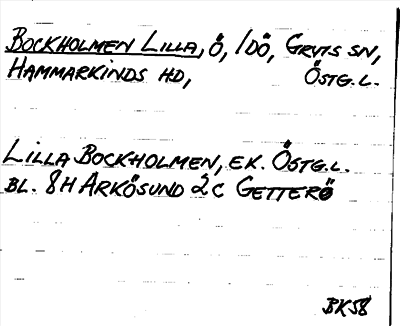 BOCKHOLMEN LILLA, Ö, IDÖ, GRYTS SN,
HAMMARKINDS HD, ÖSTG.L.
LILLA BOCKHOLMEN, EK. ÖSTG.L.
BL. 8H ARKÖSUND 2C GETTERÖ
BK58